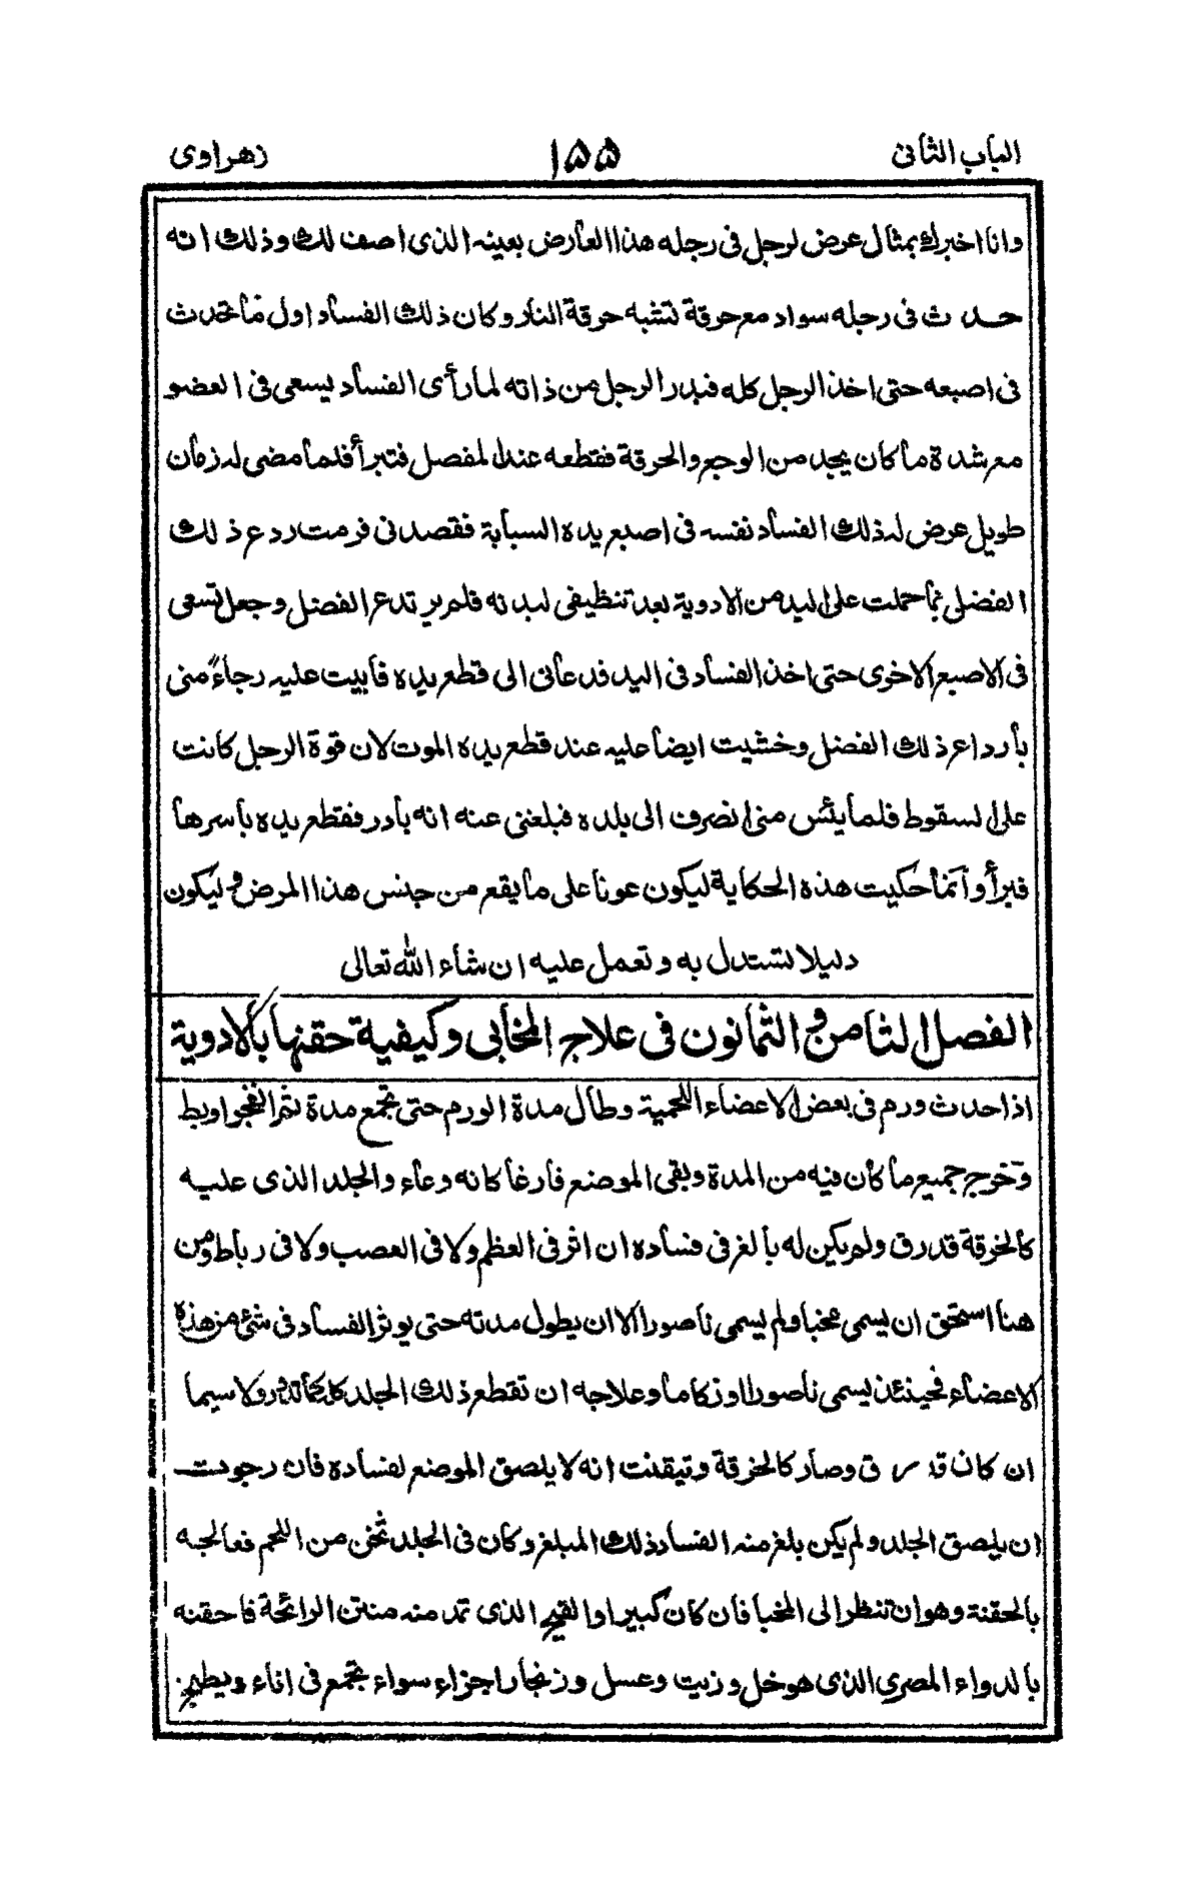 الباب الثانى ١٥٥ زهراوى
وانا اخبرك بمثال عرض لرجل فى رجله هذا العارض بعينه الذى اصف لك وذلك انه
حدث فى رجله سواد مع حرقة تشبه حرقة النار وكان ذلك الفساد اول ما تحدث
فى اصبعه حتى اخذ الرجل كله فبدر الرجل من ذاته لما رأى الفساد يسعى فى العضو
مع شدة ما كان يجد من الوجع والحرقة فقطعه عند المفصل فتبرأ فلما مضى له زمان
طويل عرض له ذلك الفساد نفسه فى اصبع يده السبابة فقصدنى فرمت ردع ذلك
الفضل بما حملت على اليد من الادوية بعد تنظيفى لبدنه فلم يرتدع الفضل وجعل تسعى
فى الاصبع الاخرى حتى اخذ الفساد فى اليد فدعانى الى قطع يده فأبيت عليه رجاءً منى
بأرداع ذلك الفضل وخشيت ايضا عليه عند قطع يده الموت لان قوة الرجل كانت
على السقوط فلما يئس منى انصرف الى بلده فبلغنى عنه انه بادر فقطع يده بأسرها
فبرأ وانما حكيت هذه الحكاية ليكون عونا على ما يقع من جنس هذا المرض وليكون
دليلا تستدل به وتعمل عليه ان شاء الله تعالى
الفصل الثامن والثمانون فى علاج المخابى وكيفية حقنها بالادوية
اذا حدث ورم فى بعض الاعضاء اللحمية وطال مدة الورم حتى تجمع مدة ثم انفجر او بط
وخرج جميع ما كان فيه من المدة وبقى الموضع فارغا كانه وعاء والجلد الذى عليه
كالخرقة قد رق ولم يكن له بالغ فى فساده ان اثر فى العظم ولا فى العصب ولا فى رباط ومن
هنا استحق ان يسمى مخبا ولم يسمى ناصورا الا ان يطول مدته حتى يوثر الفساد فى شئ من هذه
الاعضاء فحينئذ يسمى ناصورا او زكاما وعلاجه ان تقطع ذلك الجلد كله كما تدور ولا سيما
ان كان قد رق وصار كالخرقة وتيقنت انه لا يلصق الموضع لفساده فان رجوت
ان يلصق الجلد ولم يكن بلغ منه الفساد ذلك المبلغ وكان فى الجلد ثخن من اللحم فعالجه
بالحقنة وهو ان تنظر الى المخبا فان كان كبيرا والقيح الذى تمد منه منتن الرائحة فاحقنه
بالدواء المصرى الذى هو خل وزيت وعسل وزنجار اجزاء سواء تجمع فى اناء ويطبخ